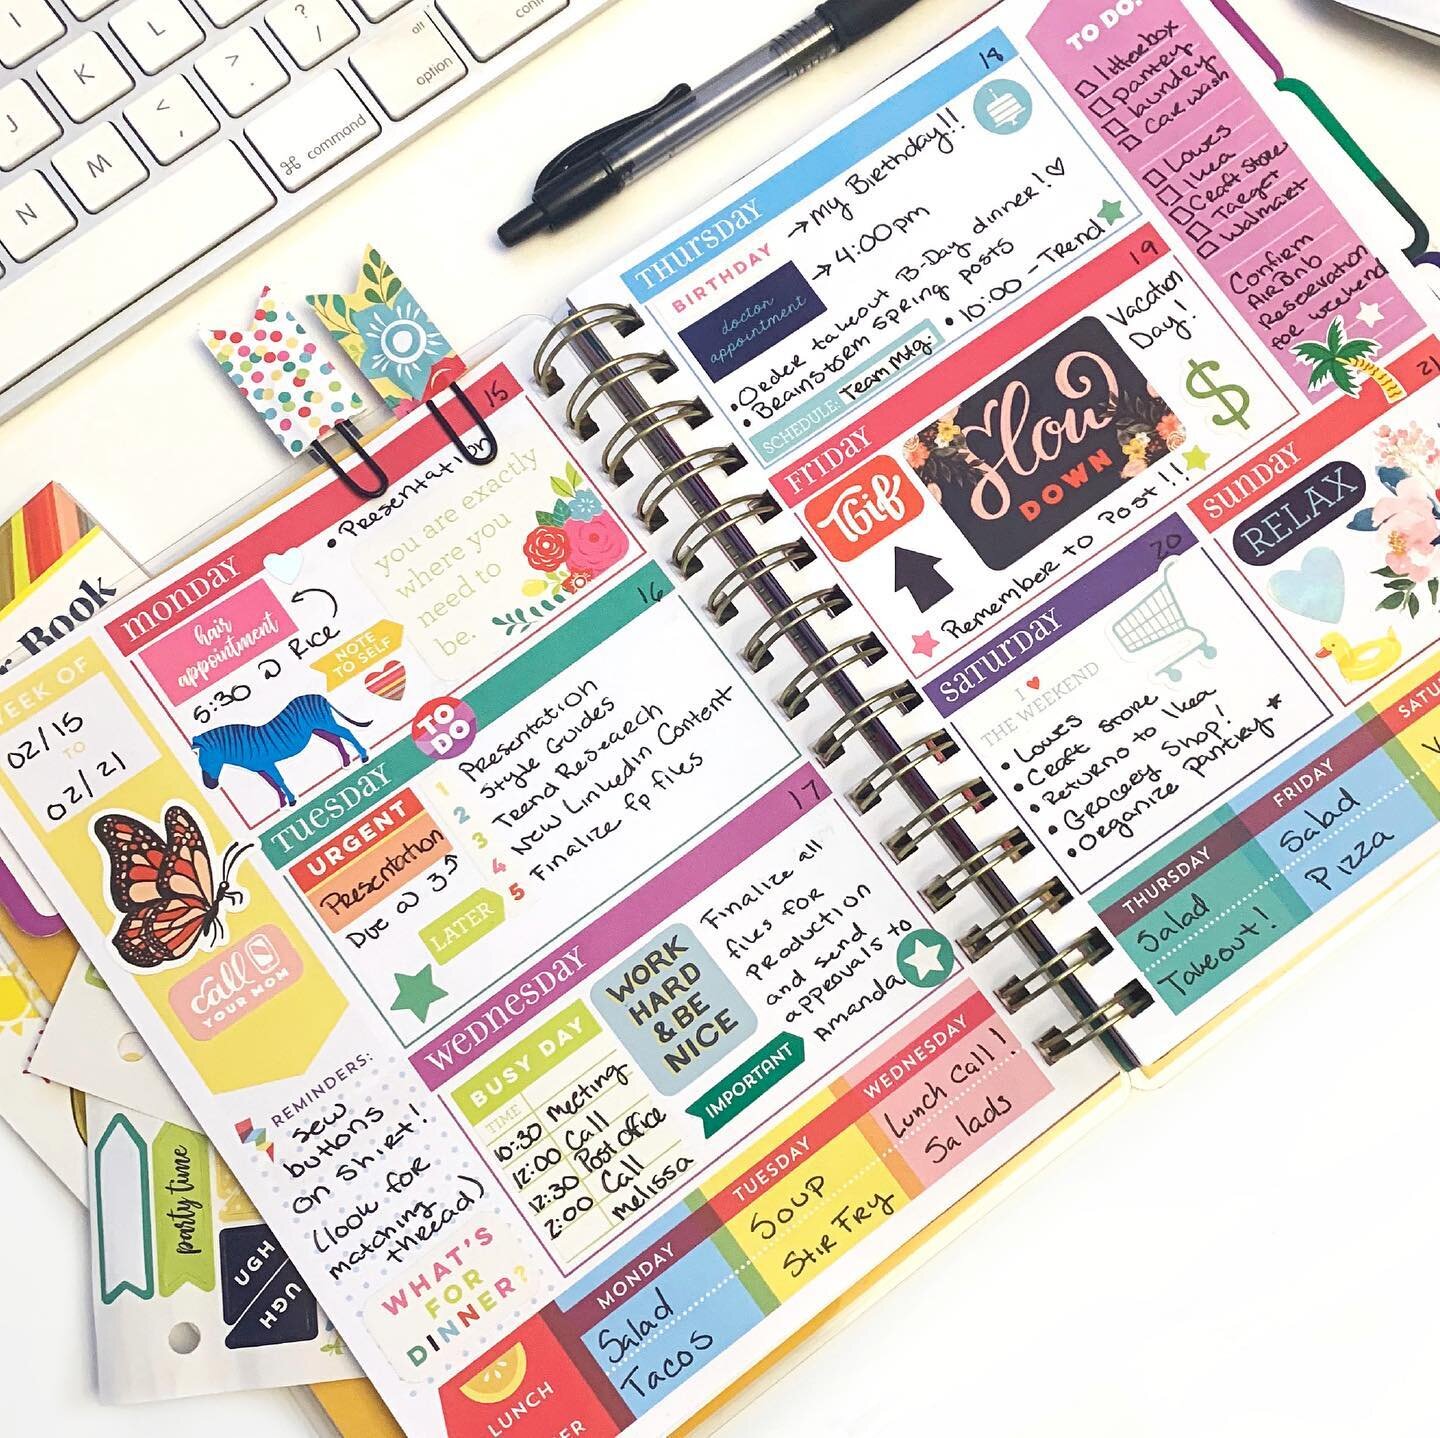 J
K
L
N
M
<
,
>
.
?
/
⌘
command
all
option
r Book
WEEK OF
02/15
TO
02/21
call
YOUR MOM
REMINDERS:
sew
buttons
on shirt!
(look for
matching
thread)
WHAT'S
FOR
DINNER?
party time
UGH
UGH
MONDAY
15
• Presentation
hair
appointment
5:30 @ Rice
NOTE
TO SELF
you are exactly
where you
need to
be.
TUESDAY
16
TO
DO
URGENT
Presentation
Due @ 3
LATER
1 Presentation
2 Style Guides
3 Trend Research
4 New LinkedIn Content
5 Finalize fp files
WEDNESDAY
17
BUSY DAY
TIME
10:30 Meeting
12:00 Call
12:30 Post Office
2:00 Call
Melissa
WORK
HARD
& BE
NICE
IMPORTANT
Finalize all
files for
production
and send
approvals to
Amanda
LUNCH
ER
MONDAY
Salad
Tacos
TUESDAY
Soup
Stir Fry
WEDNESDAY
Lunch Call!
Salads
THURSDAY
18
BIRTHDAY
→ My Birthday!!
doctor
appointment
→ 4:00pm
• Order takeout B-Day dinner!♡
• Brainstorm spring posts
SCHEDULE: Team Mtg.
• 10:00 - Trend
FRIDAY
19
TGIF
Slow
DOWN
Vacation
Day!
$
Remember to Post!!
SATURDAY
20
I ♥
THE WEEKEND
• Lowes
• Craft Store
• Return to Ikea
• Grocery Shop!
• Organize pantry*
SUNDAY
21
RELAX
TO DO:
litterbox
pantry
laundry
car wash
Lowes
Ikea
Craft Store
Target
Walmart
Confirm
AirBnb
Reservation
for weekend
THURSDAY
Salad
Takeout!
FRIDAY
Salad
Pizza
SATU